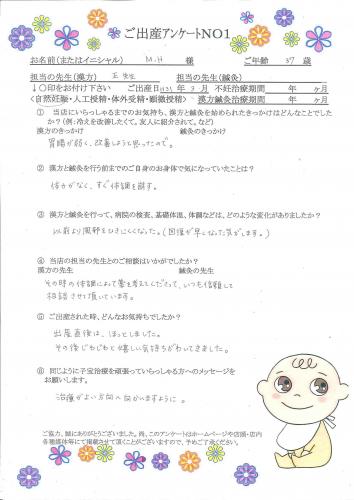 ご出産アンケートNO1
お名前(またはイニシャル) M.H 様 ご年齢 37 歳
担当の先生(漢方) 王先生 担当の先生(鍼灸)
↓〇印をお付け下さい ご出産日 H31年 3月 不妊治療期間 年 ヶ月
<自然妊娠・人工授精・体外受精・顕微授精> 漢方鍼灸治療期間 年 ヶ月
① 当店にいらっしゃるまでのお気持ち、漢方と鍼灸を始められたきっかけはどんなことでした
か?(例:冷えを改善したくて。友人に紹介されて。など)
漢方のきっかけ 鍼灸のきっかけ
胃腸が弱く、改善しようと思ったので。
② 漢方と鍼灸を行う前までのご自身のお身体で気になっていたことは?
体力がなく、すぐ体調を崩す。
③ 漢方と鍼灸を行って、病院の検査、基礎体温、体調などは、どのような変化がありましたか?
以前より風邪をひきにくくなった。(回復が早くなった気がします。)
④ 当店の担当の先生とのご相談はいかがでしたか?
漢方の先生 鍼灸の先生
その時の体調によって薬を考えてくださって、いつも信頼して
相談させて頂いています。
⑤ ご出産された時、どんなお気持ちでしたか?
出産直後は、ほっとしました。
その後じわじわと嬉しい気持ちがわいてきました。
⑥ 同じように子宝治療を頑張っていらっしゃる方へのメッセージを
お願いします。
治療がよい方向へ向かいますように。
ご協力、誠にありがとうございました。尚、このアンケートはホームページや店頭・店内
各種媒体等にて掲載させて頂くことがございますので、予めご了承ください。